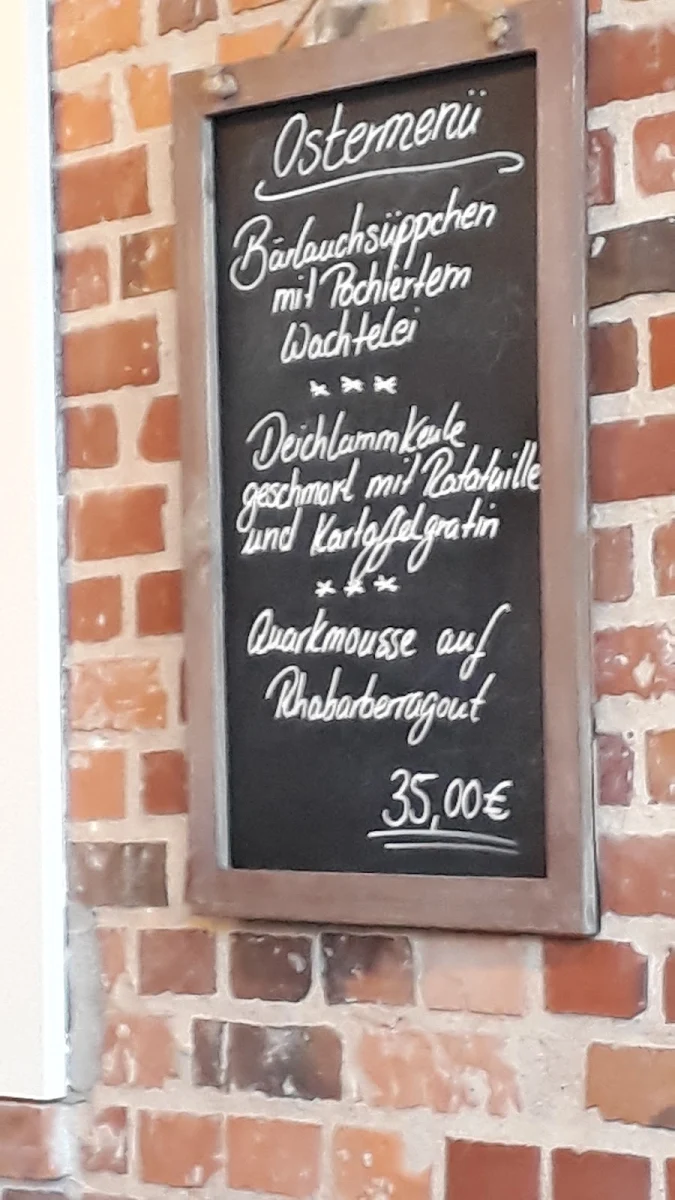 Ostermenü
Bärlauchsüppchen
mit Pochiertem
Wachtelei
***
Deichlammkeule
geschmort mit Ratatuille
und Kartoffelgratin
***
Quarkmousse auf
Rhabarberragout
35,00€